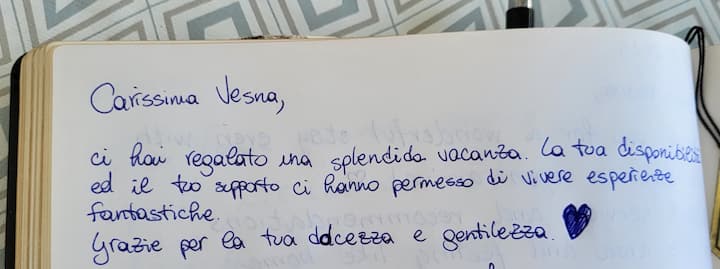 Carissima Vesna,
ci hai regalato una splendida vacanza. La tua disponibilità
ed il tuo supporto ci hanno permesso di vivere esperienze
fantastiche.
Grazie per la tua dolcezza e gentilezza.